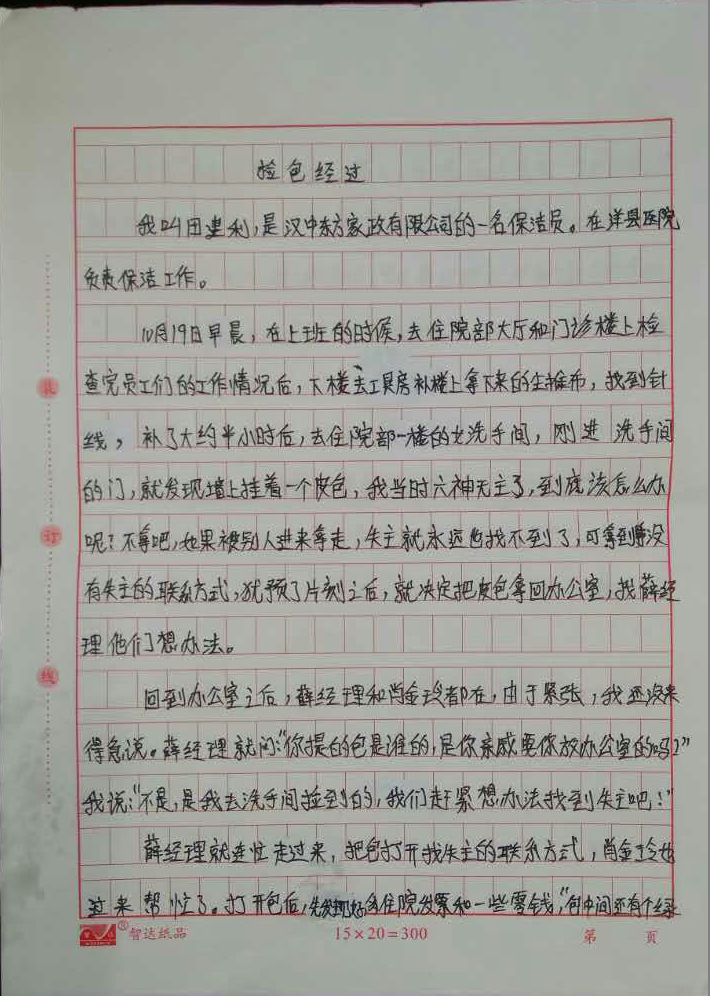 捡包经过
我叫田建利,是汉中东方家政有限公司的一名保洁员。在洋县医院
负责保洁工作。
10月19日早晨,在上班的时候,去住院部大厅和门诊楼上检
查完员工们的工作情况后,下楼去工具房补楼上拿下来的尘推布,找到针
线,补了大约半小时后,去住院部一楼的女洗手间,刚进洗手间
的门,就发现墙上挂着一个皮包,我当时六神无主了,到底该怎么办
呢?不拿吧,如果被别人进来拿走,失主就永远也找不到了,可拿到嘛没
有失主的联系方式,犹预了片刻之后,就决定把皮包拿回办公室,找薛经
理他们想办法。
回到办公室之后,薛经理和肖金玲都在,由于紧张,我还没来
得急说。薛经理就问:“你提的包是谁的,是你亲戚要你放办公室的吗?”
我说:“不是,是我去洗手间捡到的,我们赶紧想办法找到失主吧!”
薛经理就连忙走过来,把包打开找失主的联系方式,肖金玲也
过来帮忙了。打开包后,先发现好多住院发票和一些零钱,包中间还有个绿
装
订
线
智达纸品
15×20=300
第 页